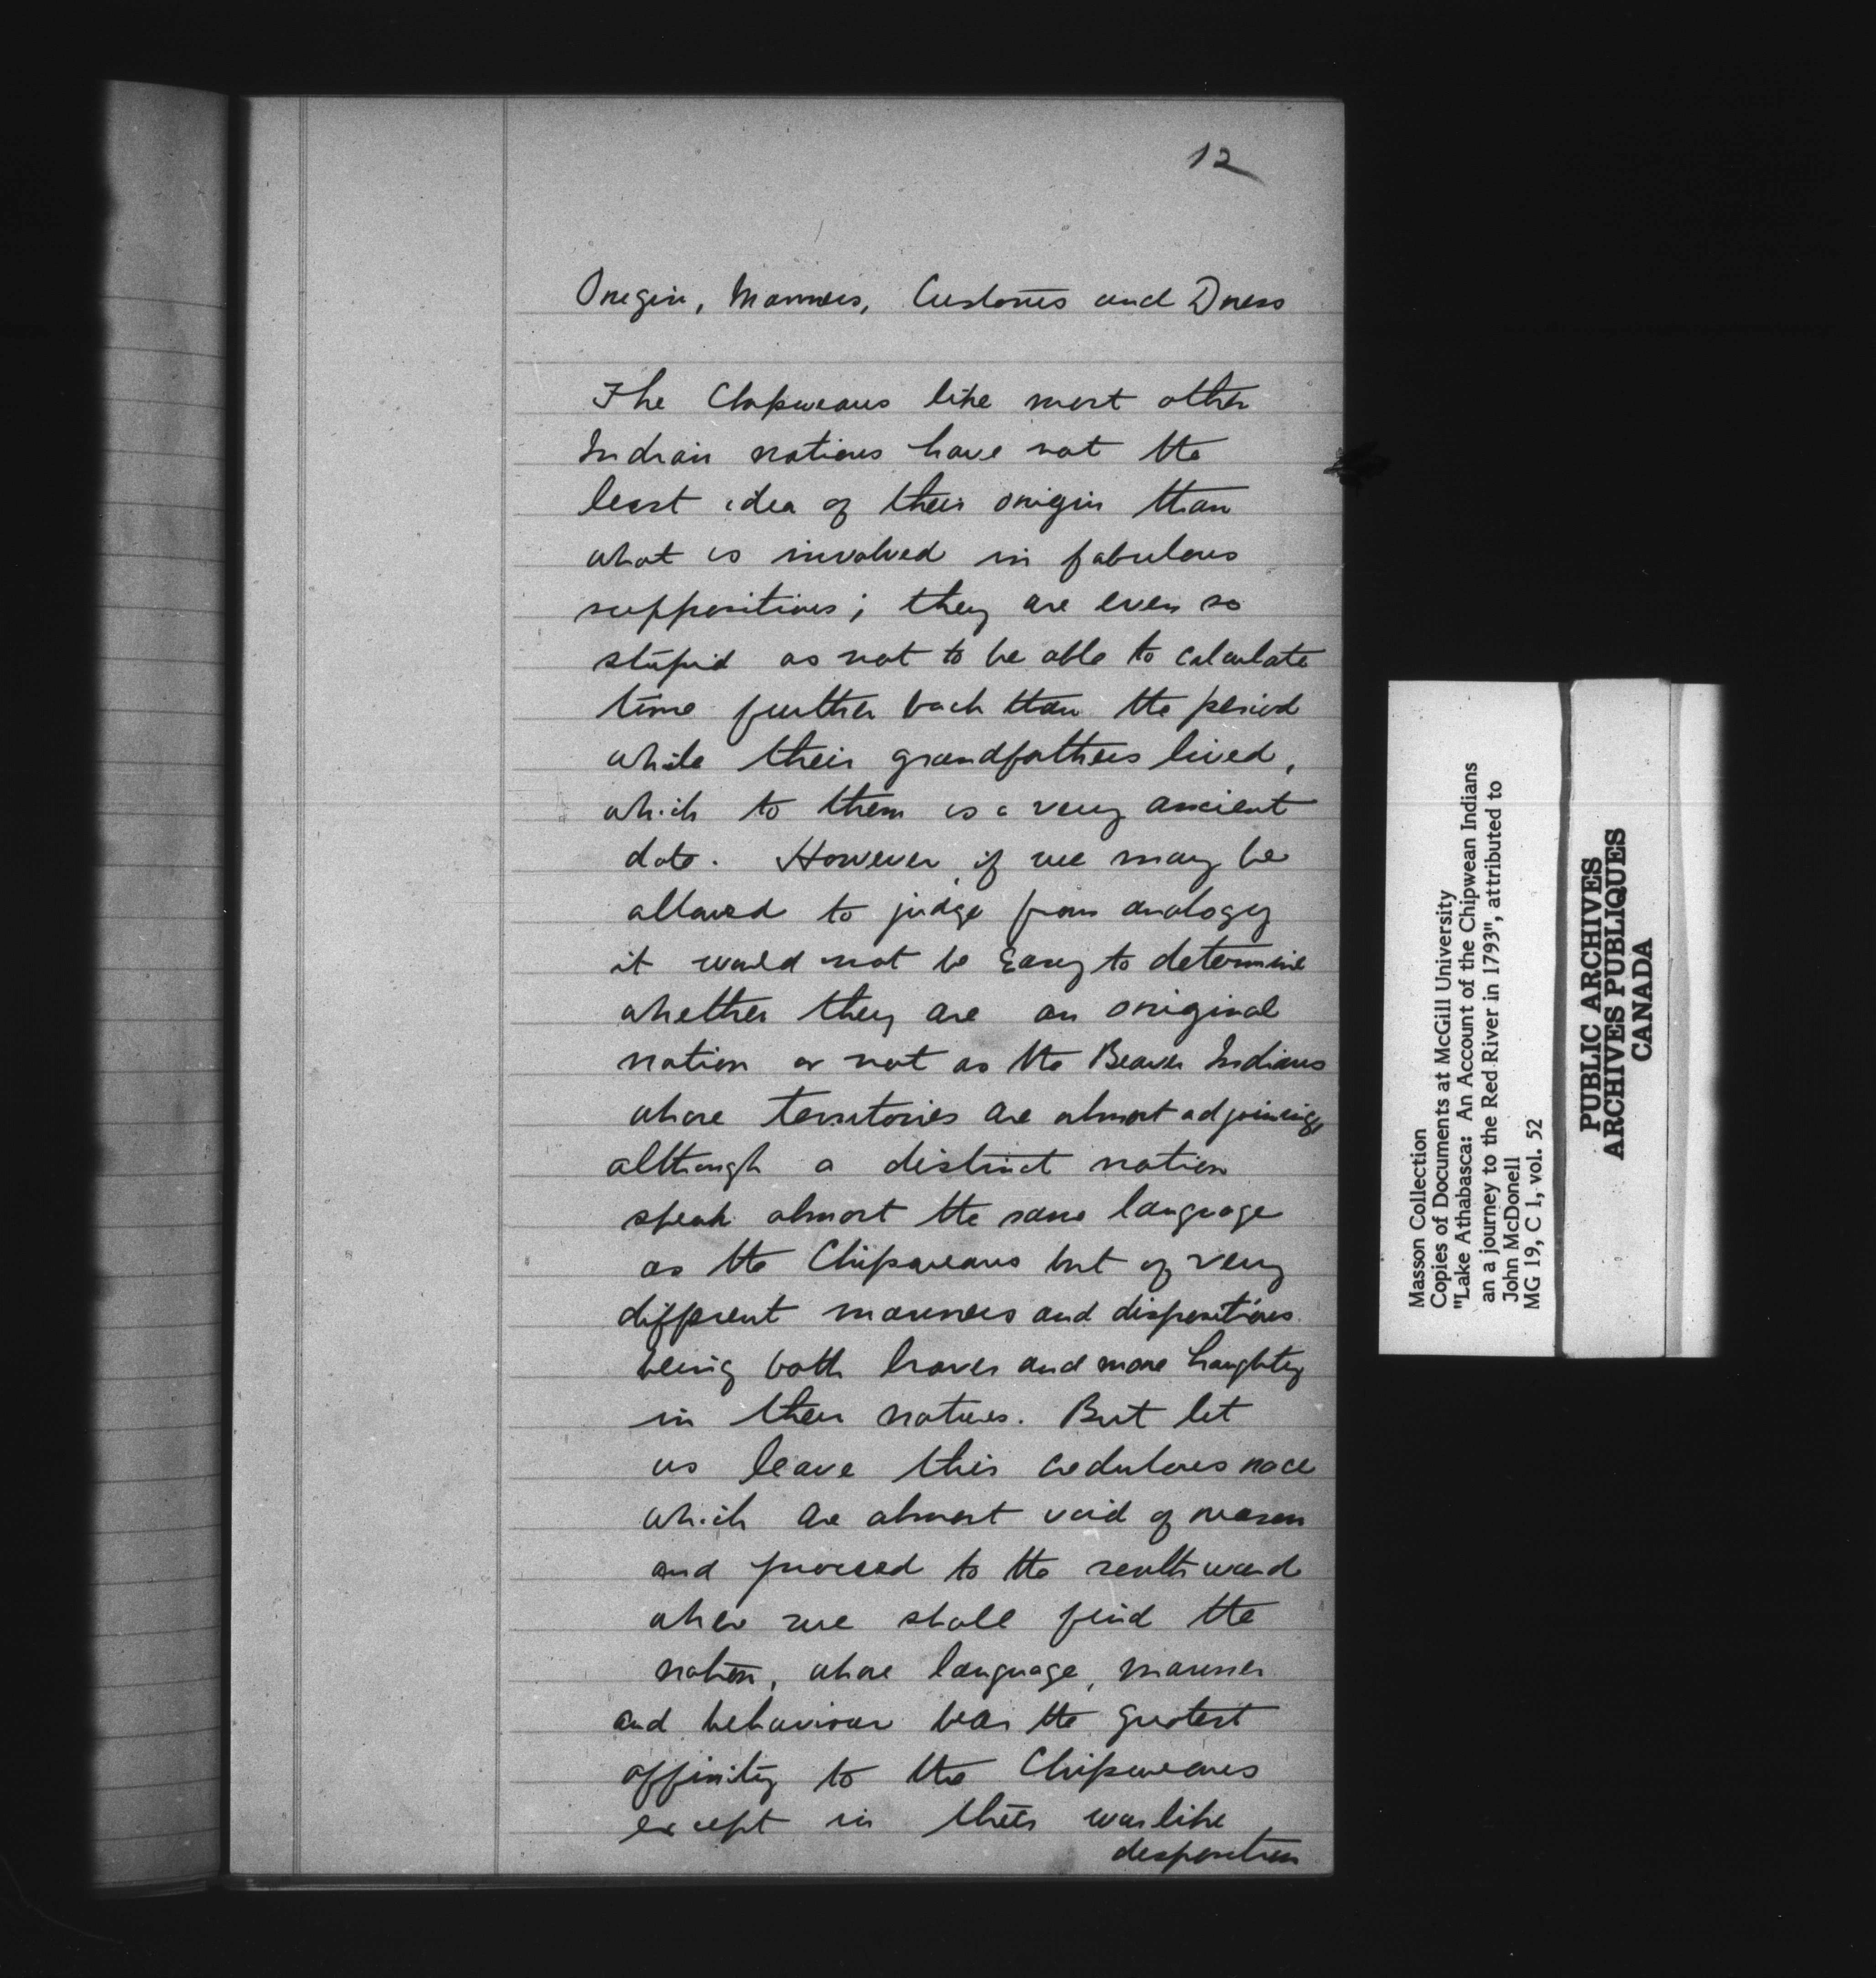 12
Origin, Manners, Customs and Dress
The Chipweans like most other
Indian nations have not the
least idea of their origin than
what is involved in fabulous
suppositions; they are even so
stupid as not to be able to calculate
time further back than the period
while their grandfathers lived,
which to them is a very ancient
date. However, if we may be
allowed to judge from analogy
it would not be Easy to determine
whether they are an original
nation or not as the Beaver Indians
whose territories are almost adjoining,
although a distinct nation
speak almost the same language
as the Chipweans but of very
different manners and dispositions.
being both braver and more haughty
in their natures. But let
us leave this credulous race
which are almost void of reason
and proceed to the southward
where we shall find the
nation, whose language, manner
and behaviour bear the greatest
affinity to the Chipweans
except in their warlike
desposition
Masson Collection
Copies of Documents at McGill University
"Lake Athabasca: An Account of the Chipwean Indians
an a journey to the Red River in 1793", attributed to
John McDonell
MG 19, C 1, vol. 52
PUBLIC ARCHIVES
ARCHIVES PUBLIQUES
CANADA